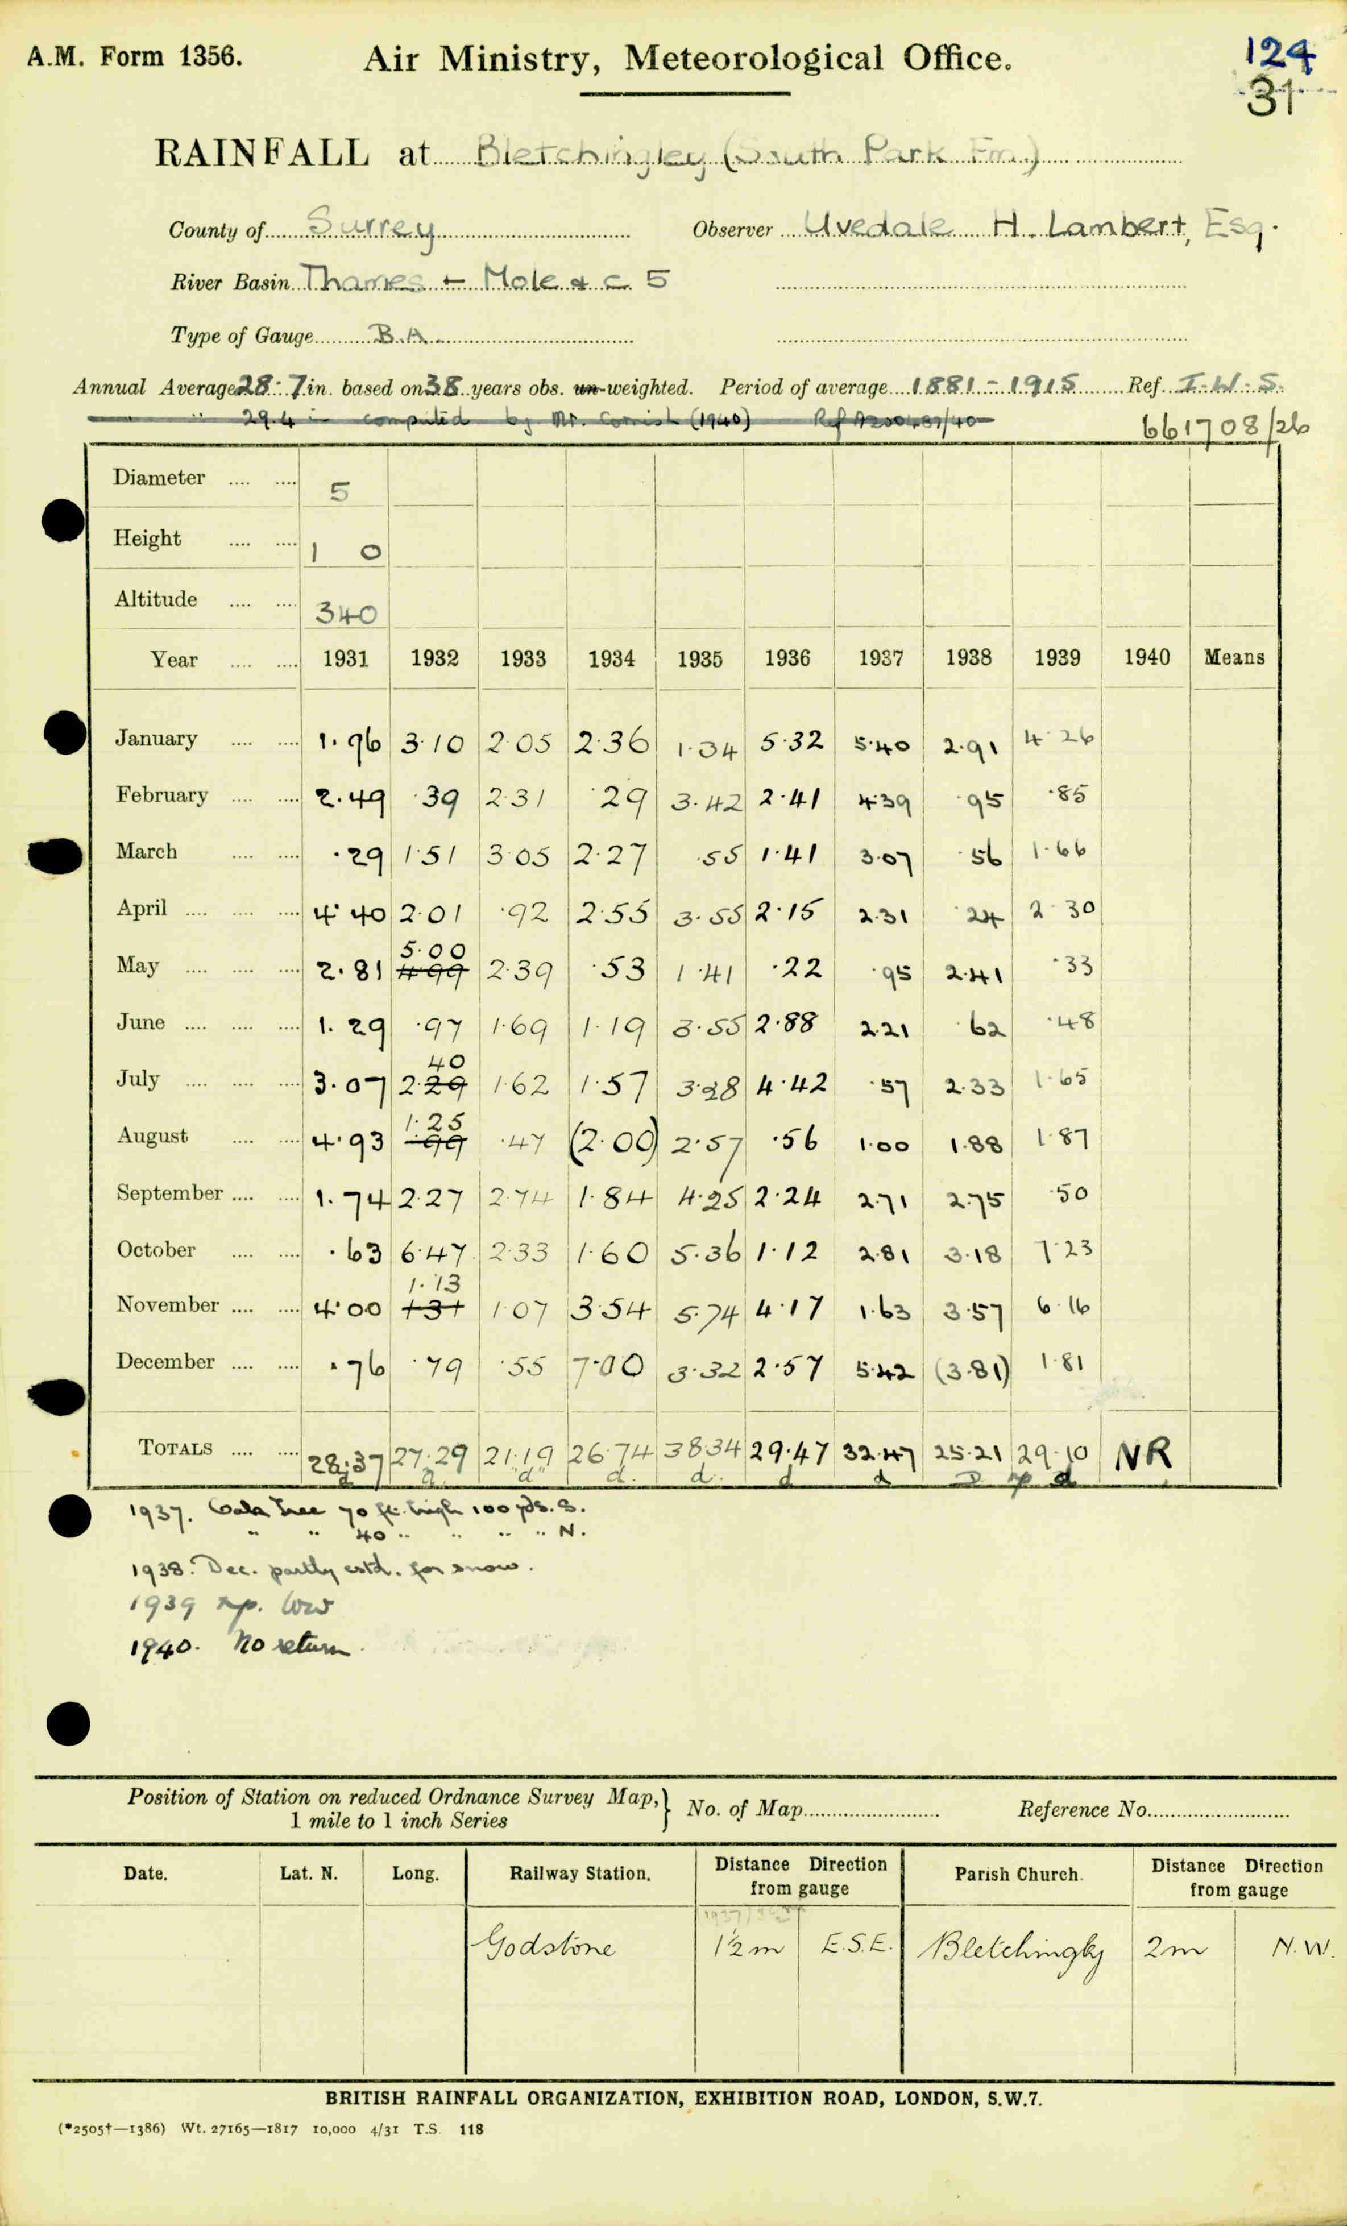 A.M. Form 1356. Air Ministry, Meteorological Office. 124
31
RAINFALL at Bletchingley (South Park Fm.)
County of Surrey Observer Uvedale H. Lambert, Esq.
River Basin Thames + Mole & c 5
Type of Gauge B.A.
Annual Average 28.7 in. based on 38 years obs. un-weighted. Period of average 1881-1915 Ref. I.W.S.
" " 29.4 in computed by Mr. Cornish (1940) Ref
661708/26
Diameter .... .... 5
Height .... .... 1 0
Altitude .... .... 340
Year .... .... 1931 1932 1933 1934 1935 1936 1937 1938 1939 1940 Means
January .... .... 1.96 3.10 2.05 2.36 1.34 5.32 5.40 2.91 4.26
February .... .... 2.49 .39 2.31 .29 3.42 2.41 4.39 .95 .85
March .... .... .29 1.51 3.05 2.27 .55 1.41 3.07 .56 1.66
April .... .... .... 4.40 2.01 .92 2.55 3.55 2.15 2.31 .24 2.30
5.00
May .... .... .... 2.81 4.99 2.39 .53 1.41 .22 .95 2.41 .33
June .... .... .... 1.29 .97 1.69 1.19 3.55 2.88 2.21 .62 .48
40
July .... .... .... 3.07 2.29 1.62 1.57 3.28 4.42 .57 2.33 1.65
1.25
August .... .... 4.93 .99 .47 (2.00) 2.57 .56 1.00 1.88 1.87
September .... .... 1.74 2.27 2.74 1.84 4.25 2.24 2.71 2.75 .50
October .... .... .63 6.47 2.33 1.60 5.36 1.12 2.81 3.18 7.23
1.13
November .... .... 4.00 1.31 1.07 3.54 5.74 4.17 1.63 3.57 6.16
December .... .... .76 .79 .55 7.00 3.32 2.57 5.42 (3.81) 1.81
TOTALS .... .... 28.37 27.29 21.19 26.74 38.34 29.47 32.47 25.21 29.10 NR
d d "d" d. d. d d D np d
1937. Oak tree 70 ft. high 100 yds. S.
" " 40 " " " " N.
1938. Dec. partly estd. for snow.
1939 np. low
1940. No return
Position of Station on reduced Ordnance Survey Map, 1 mile to 1 inch Series } No. of Map Reference No.
Date. Lat. N. Long. Railway Station. Distance Direction from gauge Parish Church. Distance Direction from gauge
Godstone 1½ m E.S.E. Bletchingley 2m N.W.
BRITISH RAINFALL ORGANIZATION, EXHIBITION ROAD, LONDON, S.W.7.
(*2505†—1386) Wt. 27165—1817 10,000 4/31 T.S. 118